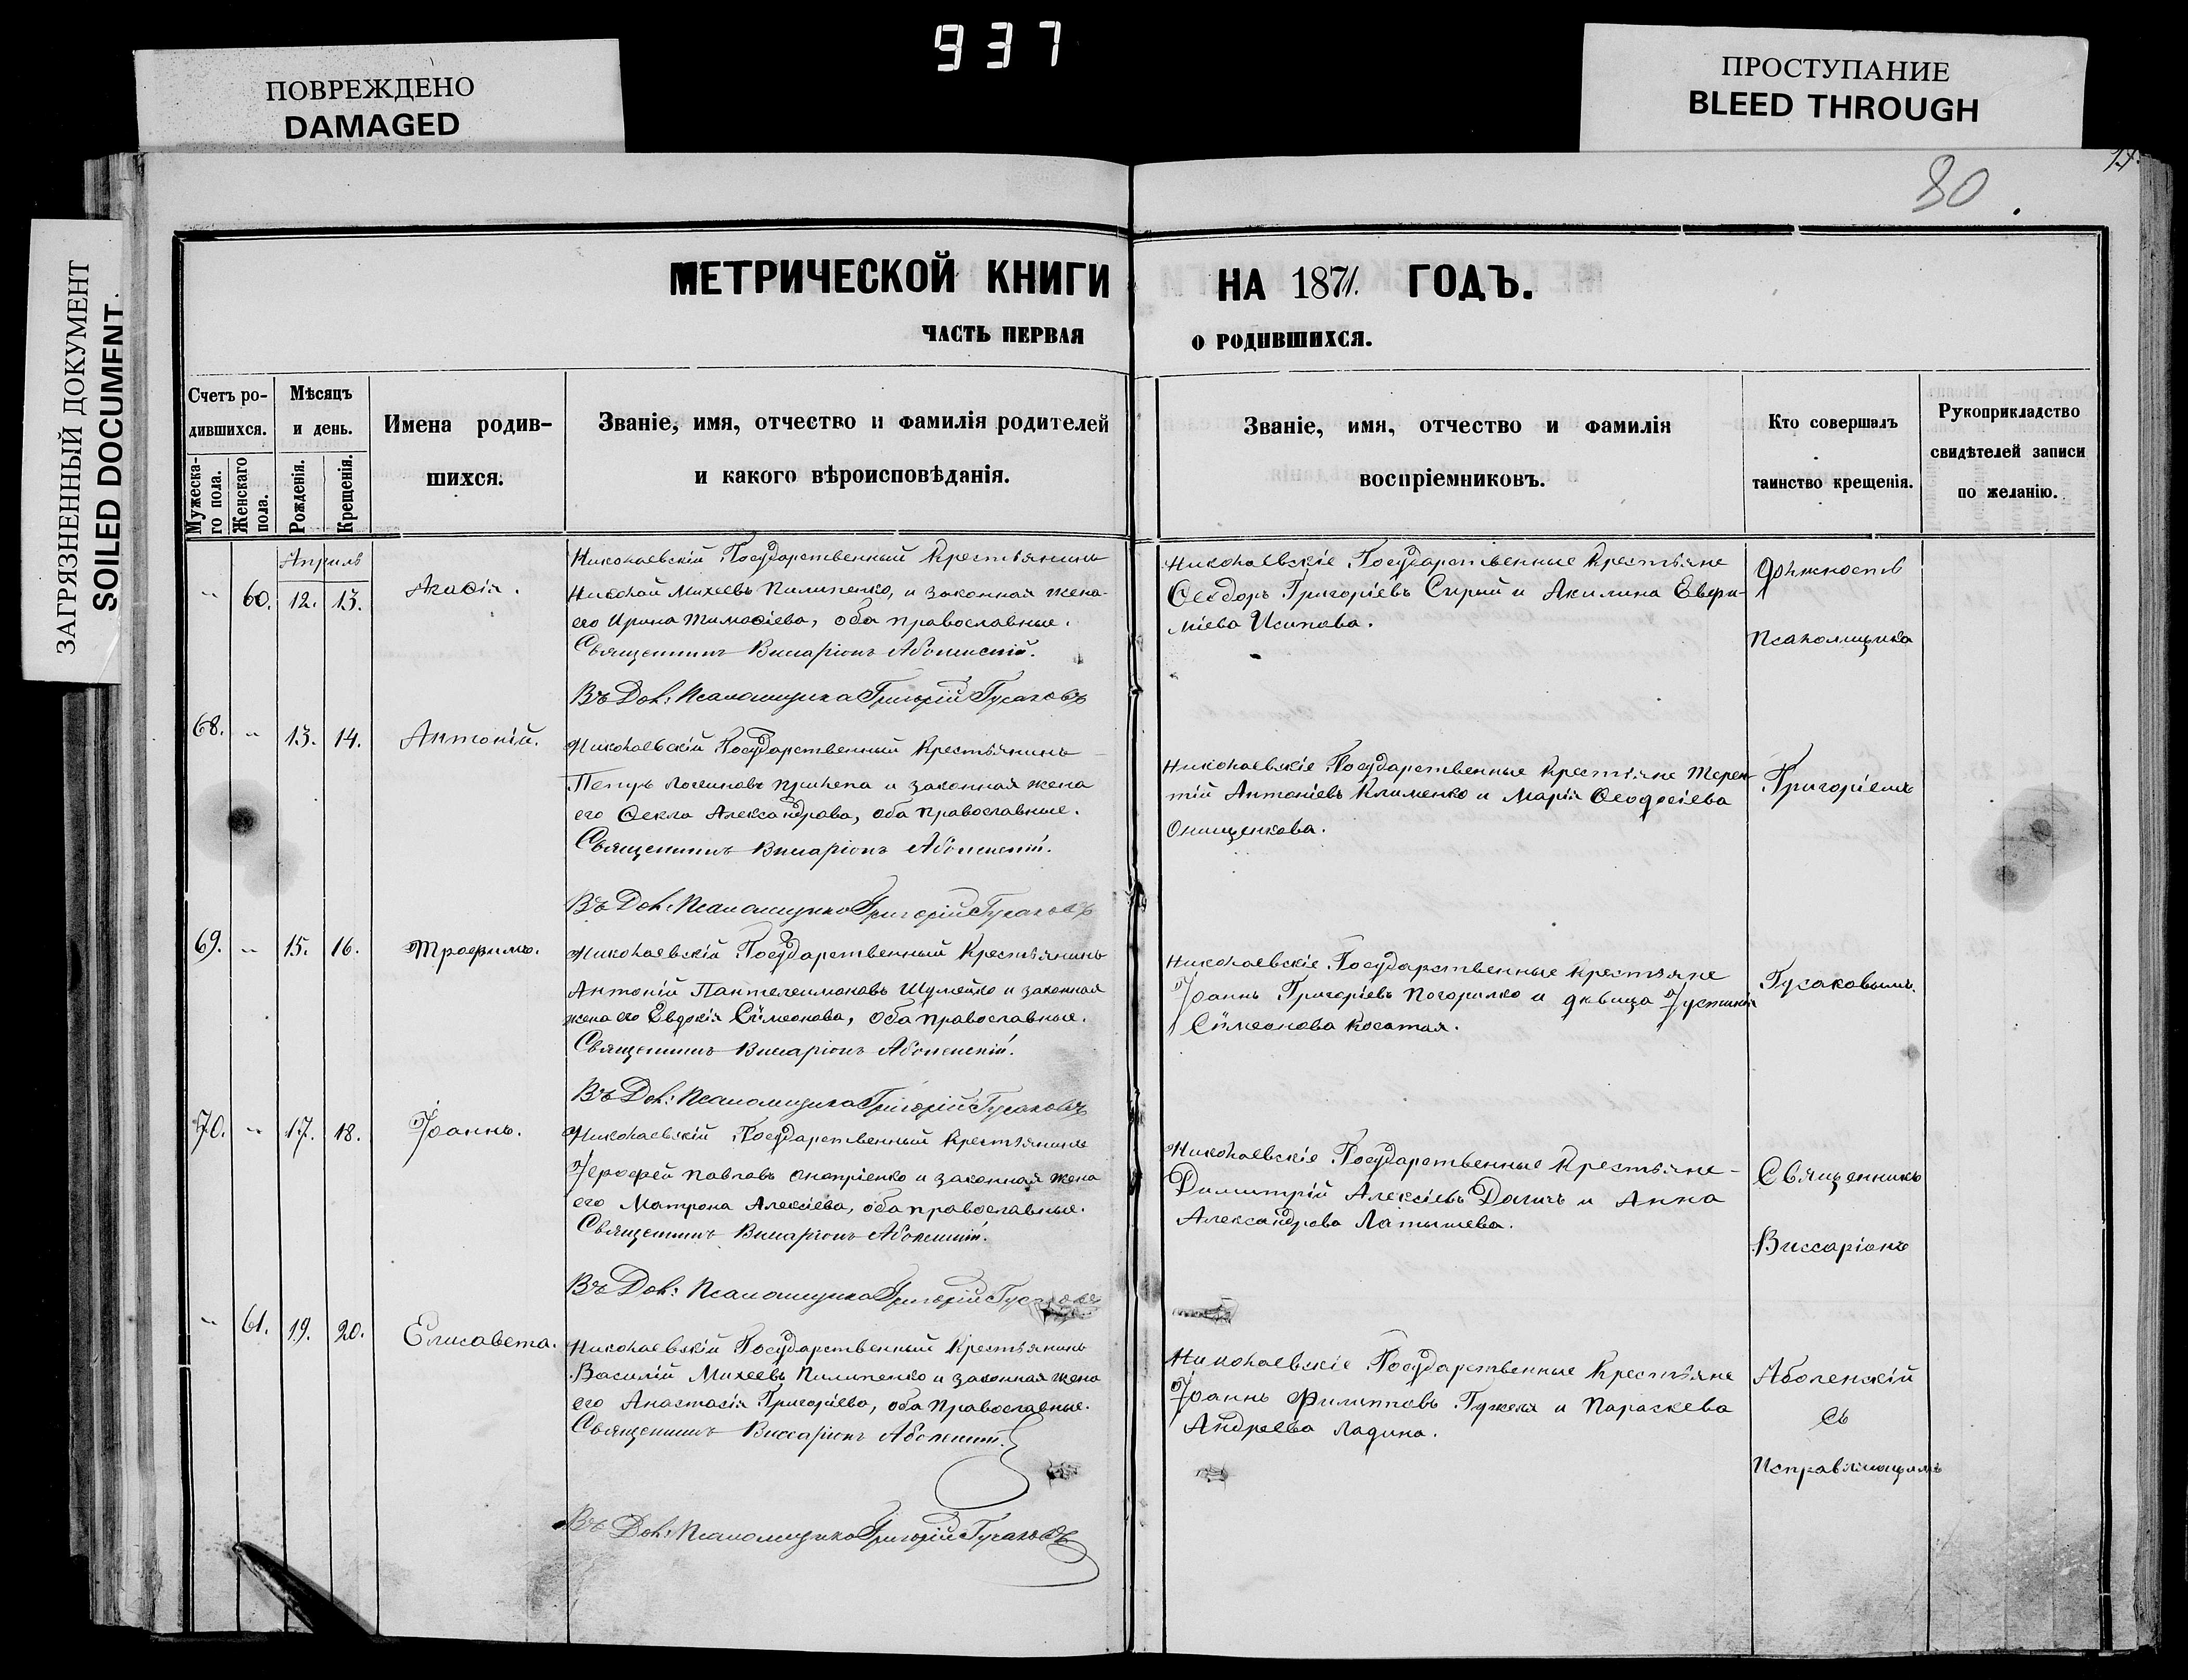 937
ПОВРЕЖДЕНО
DAMAGED
ПРОСТУПАНИЕ
BLEED THROUGH
ЗАГРЯЗНЕННЫЙ ДОКУМЕНТ
SOILED DOCUMENT.
80
МЕТРИЧЕСКОЙ КНИГИ НА 1871. ГОДЪ.
ЧАСТЬ ПЕРВАЯ О РОДИВШИХСЯ.
Счетъ ро-
дившихся.
Мужеска-
го пола.
Женскаго
пола.
Мѣсяцъ
и день.
Рожденія.
Крещенія.
Имена родив-
шихся.
Званіе, имя, отчество и фамилія родителей
и какого вѣроисповѣданія.
Званіе, имя, отчество и фамилія
воспріемниковъ.
Кто совершалъ
таинство крещенія.
Рукоприкладство
свидѣтелей записи
по желанію.
Апрѣль
" 60. 12. 13.
Николаевскій Государственный Крестьянинъ
Николай Михеевъ Пилипенко, и законная жена
его Ирина Тимоѳіева, оба православные.
Священникъ Виссаріонъ Аболенскій.
Въ Дол: Псаломщика Григорій Гусаковъ
Николаевскіе Государственные Крестьяне
Ѳеодоръ Григоріевъ Сирый и Акилина Евфи-
міева Исипова.
должность
Псаломщика
68. " 13. 14. Антоній.
Николаевскій Государственный Крестьянинъ
Петръ Логиновъ Прилепа и законная жена
его Ѳекла Александрова, оба православные.
Священникъ Виссаріонъ Аболенскій.
Въ Дол: Псаломщика Григорій Гусаковъ
Николаевскіе Государственные Крестьяне Терен-
тій Антоніевъ Клименко и Марія Ѳеодосіева
Онищенкова.
Григоріемъ
69. " 15. 16. Трофимъ.
Николаевскій Государственный Крестьянинъ
Антоній Пантелеимоновъ Шумейко и законная
жена его Евдокія Сѵмеонова, оба православные.
Священникъ Виссаріонъ Аболенскій.
Въ Дол: Псаломщика Григорій Гусаковъ
Николаевскіе Государственные Крестьяне
Іоаннъ Григоріевъ Погорилко и дѣвица Іустинія
Сѵмеонова Косатая.
Гусаковымъ.
70. " 17. 18. Іоаннъ.
Николаевскій Государственный Крестьянинъ
Іерофей Павловъ Оноприенко и законная жена
его Матрона Алексіева, оба православные.
Священникъ Виссаріонъ Аболенскій.
Въ Дол: Псаломщика Григорій Гусаковъ
Николаевскіе Государственные Крестьяне
Димитрій Алексіевъ и Анна
Александрова Латышева.
Священникъ
Виссаріонъ
" 61. 19. 20. Елисавета.
Николаевскій Государственный Крестьянинъ
Василій Михеевъ Пилипенко и законная жена
его Анастасія Григоріева, оба православные.
Священникъ Виссаріонъ Аболенскій.
Въ Дол: Псаломщика Григорій Гусаковъ
Николаевскіе Государственные Крестьяне
Іоаннъ Филипповъ Гужеля и Параскева
Андреева Ладина.
Аболенскій
съ
Исправляющимъ